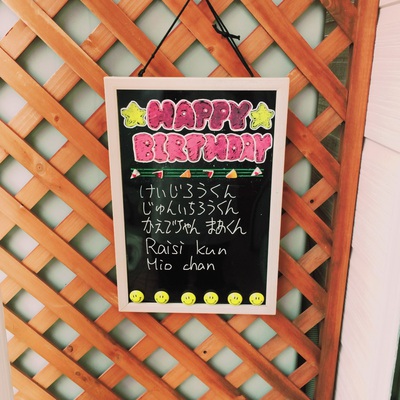 HAPPY
BIRTHDAY
けいじろうくん
じゅんいちろうくん
かえでちゃん まみくん
Raisi kun
Mio chan